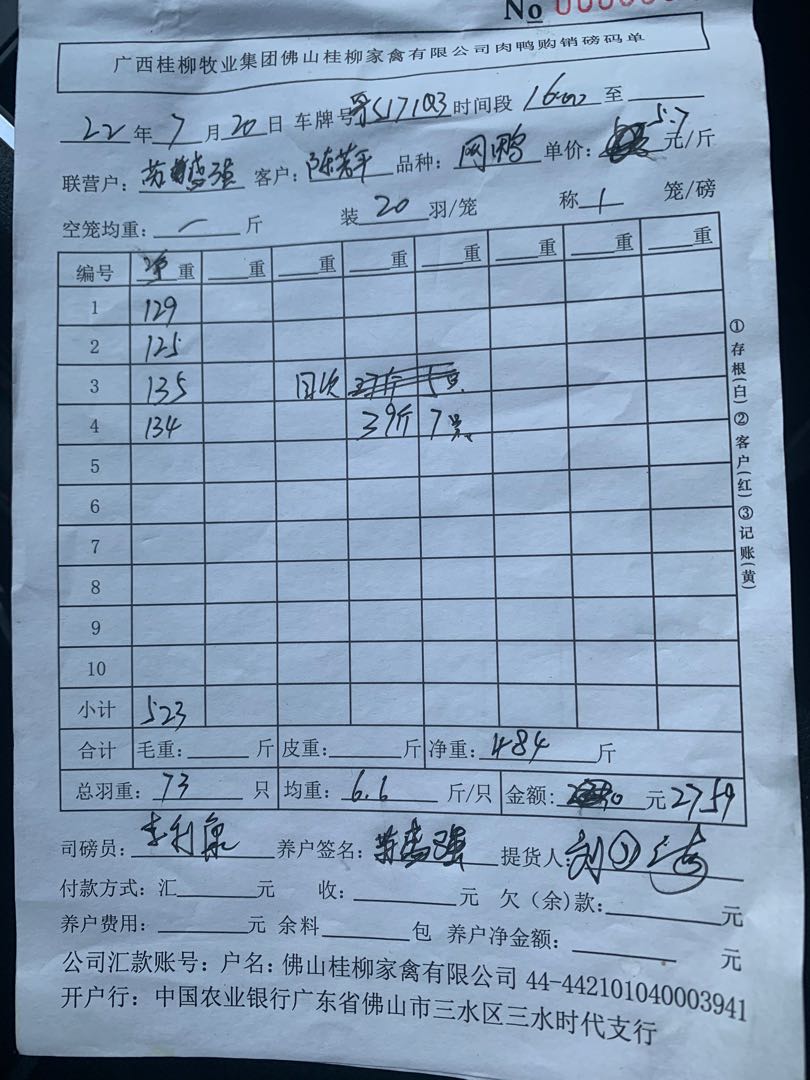 No 000
广西桂柳牧业集团佛山桂柳家禽有限公司肉鸭购销磅码单
22年7月20日 车牌号 粤S17103 时间段 16:00 至
联营户: 客户: 陈芳平 品种: 网鸭 单价: 5.7 元/斤
空笼均重: 一 斤 装 20 羽/笼 称 1 笼/磅
编号 净重 重 重 重 重 重 重 重
1 129
2 125
3 135 回次
4 134 39斤 7只
5
6
7
8
9
10
小计 523
合计 毛重: 斤 皮重: 斤 净重: 484 斤
总羽重: 73 只 均重: 6.6 斤/只 金额: 元 2759
司磅员: 李利 养户签名: 提货人: 刘
付款方式: 汇 元 收: 元 欠(余)款: 元
养户费用: 元 余料 包 养户净金额: 元
公司汇款账号: 户名: 佛山桂柳家禽有限公司 44-442101040003941
开户行: 中国农业银行广东省佛山市三水区三水时代支行
①存根(白)②客户(红)③记账(黄)